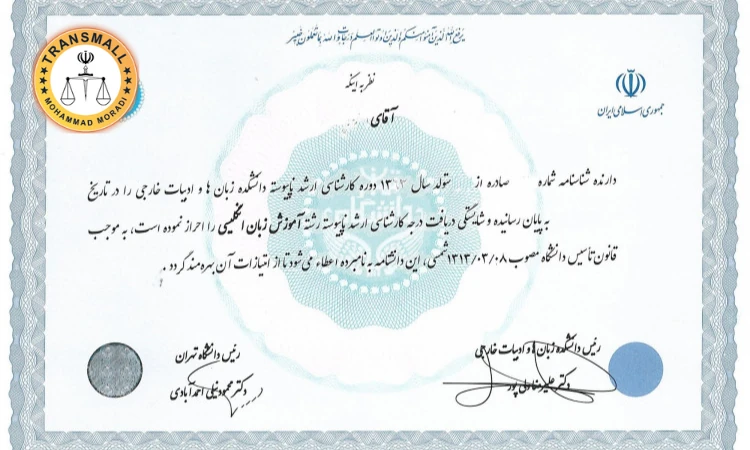 یرفع الله الذین آمنوا منکم والذین اوتوا العلم درجات والله بما تعملون خبیر
TRANSMALL
MOHAMMAD MORADI
جمهوری اسلامی ایران
نظر به اینکه
آقای
دارنده شناسنامه شماره صادره از متولد سال دوره کارشناسی ارشد ناپیوسته دانشکده زبان ها و ادبیات خارجی را در تاریخ
به پایان رسانیده و شایستگی دریافت درجه کارشناسی ارشد ناپیوسته رشته آموزش زبان انگلیسی را احراز نموده است، به موجب
قانون تأسیس دانشگاه مصوب ۱۳۱۳/۰۳/۰۸ شمسی، این دانشنامه به نامبرده اعطاء می‌شود تا از امتیازات آن بهره‌مند گردد.
رئیس دانشکده زبان ها و ادبیات خارجی
دکتر علیرضا ولی پور
رئیس دانشگاه تهران
دکتر محمود نیلی احمدآبادی